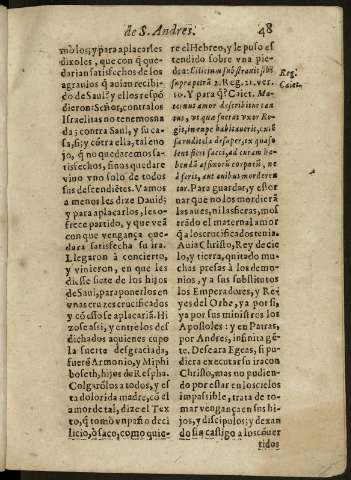 de S. Andres.
48
molos; y para aplacarles
dixoles, que con q̃ quedarian
satisfechos de los
agrauios q̃ auian recibido
de Saul? y ellos respõ
dieron: Señor, contra los
Israelitas no tenemos na
da; contra Saul, y su casa,
si; y cõtra ella, tal eno
jo, q̃ no quedaremos satisfechos,
sino es quedare
viuo vno solo de todos
sus descendiẽtes. Vamos
a menos les dize Dauid;
y para aplacarlos, les ofrece
partido, y que veã
con que vengança quedara
satisfecha su ira.
Llegaron à concierto,
y vinieron, en que les
diesse siete de los hijos
de Saul, para ponerlos en
vnas cruzes crucificados
y cõ esso se aplacariã. Hi
zose assi, y entre los desdichados
aquienes cupo
la suerte desgraciada,
fuerõ Armonio, y Miphi
boseth, hijos de Respha.
Colgarõlos a todos, y es
ta dolorida madre, cõ el
amor de tal, dize el Texto,
q̃ tomò vn paño de ci
licio, ò saco, como quie-
re el Hebreo, y le puso es
tendido sobre vna piedra:
Cilicium substrauit sibi
supra petrã 2. Reg. 21. verso.
Y para q̃? Caiet. Ma-
ternus amor describitur tan
tus, vt quæ fuerat vxor Regis,
in rupe habitauerit, exis
sa tuditela desuper, ex quali
lent fieri sacci, ad curam ha-
bendã assinorũ corporũ, ne
à feris, aut auibus morderen
tur. Para guardar, y estor
nar que no los mordierã
las aues, ni las fieras, mos
trãdo el maternal amor
q̃ a los crucificados tenia.
Auia Christo, Rey de cie
lo, y tierra, quitado muchas
presas à los demonios,
y a sus substitutos
los Emperadores, y Reyes
del Orbe, ya por si,
ya por sus ministros los
Apostoles: y en Patras,
por Andres, infinita gẽ-
te. Deseara Egeas, si pudiera
executar su ira con
Christo, mas no pudiendo
por estar en los cielos
impassible, trata de tomar
vengança en sus hijos,
y discipulos; y dexan
do sin castigo a los cõuer
tidos
Reg.
Caiet.